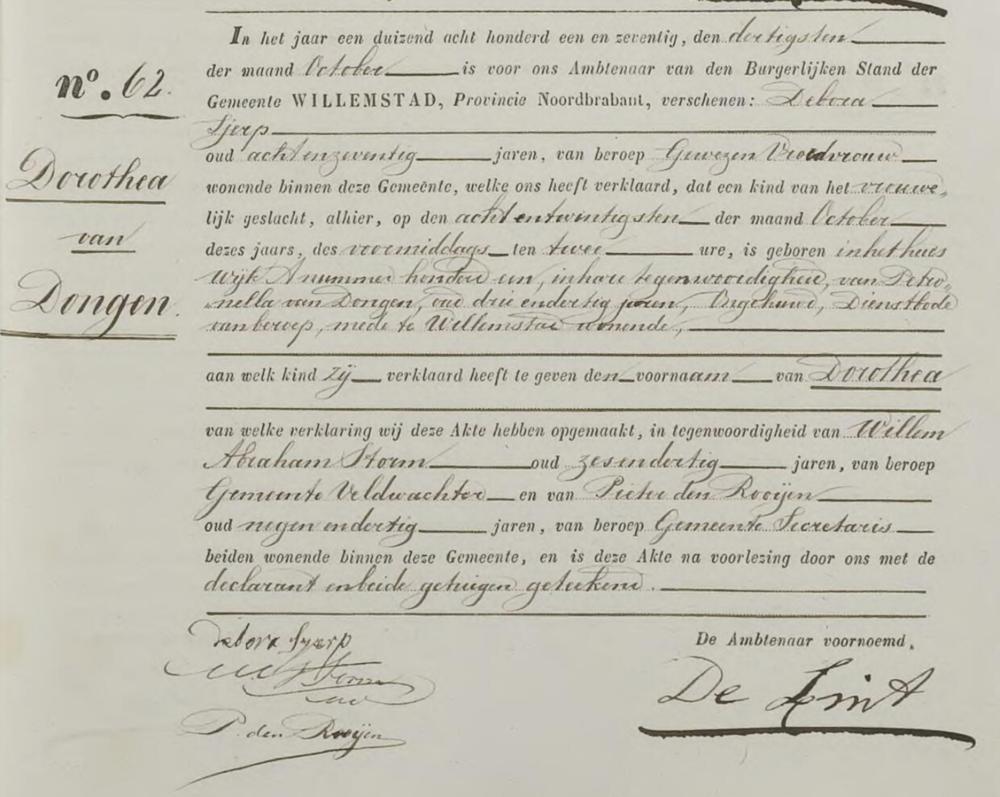 In het jaar een duizend acht honderd een en zeventig, den dertigsten
der maand October is voor ons Ambtenaar van den Burgerlijken Stand der
nº. 62.
Gemeente WILLEMSTAD, Provincie Noordbrabant, verschenen: Debora
Sjerp
oud achtenzeventig jaren, van beroep Gewezen Vroedvrouw
Dorothea
van
Dongen.
wonende binnen deze Gemeente, welke ons heeft verklaard, dat een kind van het vrouwe-
lijk geslacht, alhier, op den achtentwintigsten der maand October
dezes jaars, des voormiddags ten twee ure, is geboren in het huis
Wijk A nummer honderd een, in hare tegenwoordigheid, van Petro-
nella van Dongen, oud drie endertig jaren, Ongehuwd, Dienstbode
van beroep, mede te Willemstad wonende,
aan welk kind zij verklaard heeft te geven den voornaam van Dorothea
van welke verklaring wij deze Akte hebben opgemaakt, in tegenwoordigheid van Willem
Abraham Storm oud zesendertig jaren, van beroep
Gemeente Veldwachter en van Pieter den Rooijen
oud negenendertig jaren, van beroep Gemeente Secretaris
beiden wonende binnen deze Gemeente, en is deze Akte na voorlezing door ons met de
declarant en beide getuigen getekend.
Debora Sjerp
De Ambtenaar voornoemd,
W A Storm
De Lint
P. den Rooijen